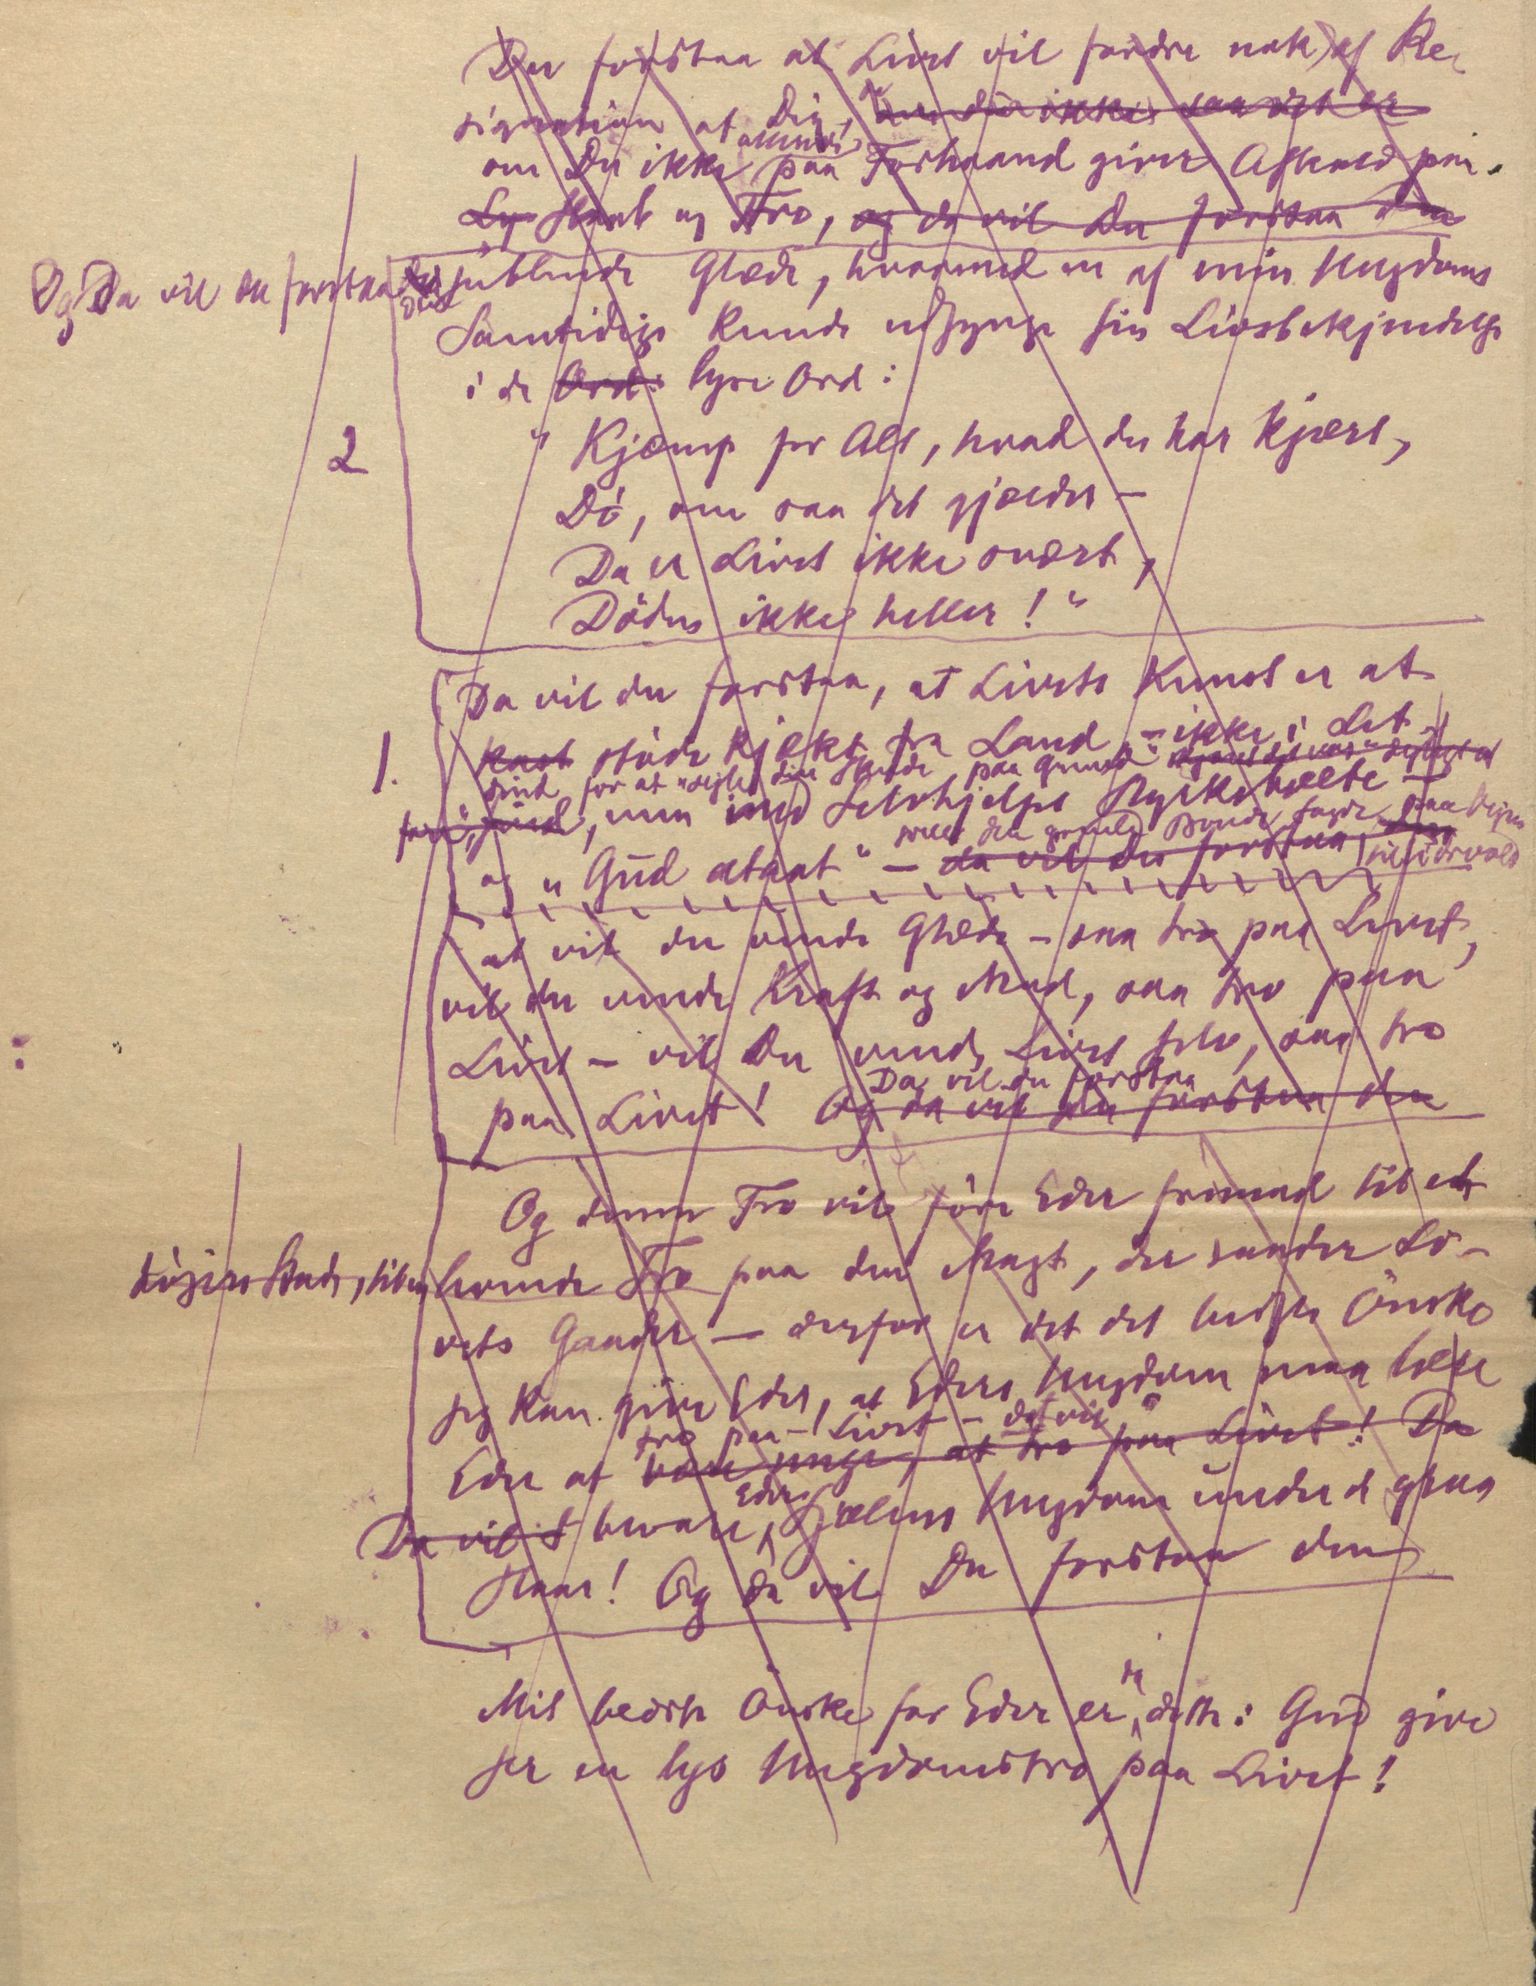 Du forstaa at Livet vil fordre nok af Re-
signation af Dig,
om Du ikke paa Forhaand giver Afkald paa
Haab og Tro, og da vil du forstaa den
Og Da vil du forstaa den jublende Glæde, hvormed en af min Ungdoms
Samtidige kunde udsynge sin Livsbekjendelse
i de Ord: lyse Ord:
2
"Kjæmp for Alt, hvad du har kjært,
Dö, om saa det gjælder –
Da er Livet ikke svært,
Döden ikke heller!"
Da vil du forstaa, at Livets Kunst er at
1.
stöde kjækt fra Land – ikke i Let-
sind for at "sejle din Skude paa Grund"
men med Selvhjelps Styrkebælte –
og "Gud altaat" – da vil du forstaa
at vil du vinde Glæde – saa tro paa Livet,
vil du vinde Kraft og Mod, saa tro paa
Livet – vil Du vinde Livet selv, saa tro
Da vil du forstaa
paa Livet! Og da vil du forstaa den
Og denne Tro vil före Eder fremad til et
höjere Stade, til en levende Tro paa den Magt, der sender Li-
vets Gaader – derfor er det det bedste Önske
jeg kan give Eder, at Eders Ungdom maa lære
tro paa – Livet – det vil
Eder at være unge, at tro paa Livet! Da
Da vil det bevare Eders Sjælens Ungdom under de graa
Haar! Og da vil Du forstaa den
Mit bedste Önske for Eder er da dette: Gud give
jer en lys Ungdomstro paa Livet!